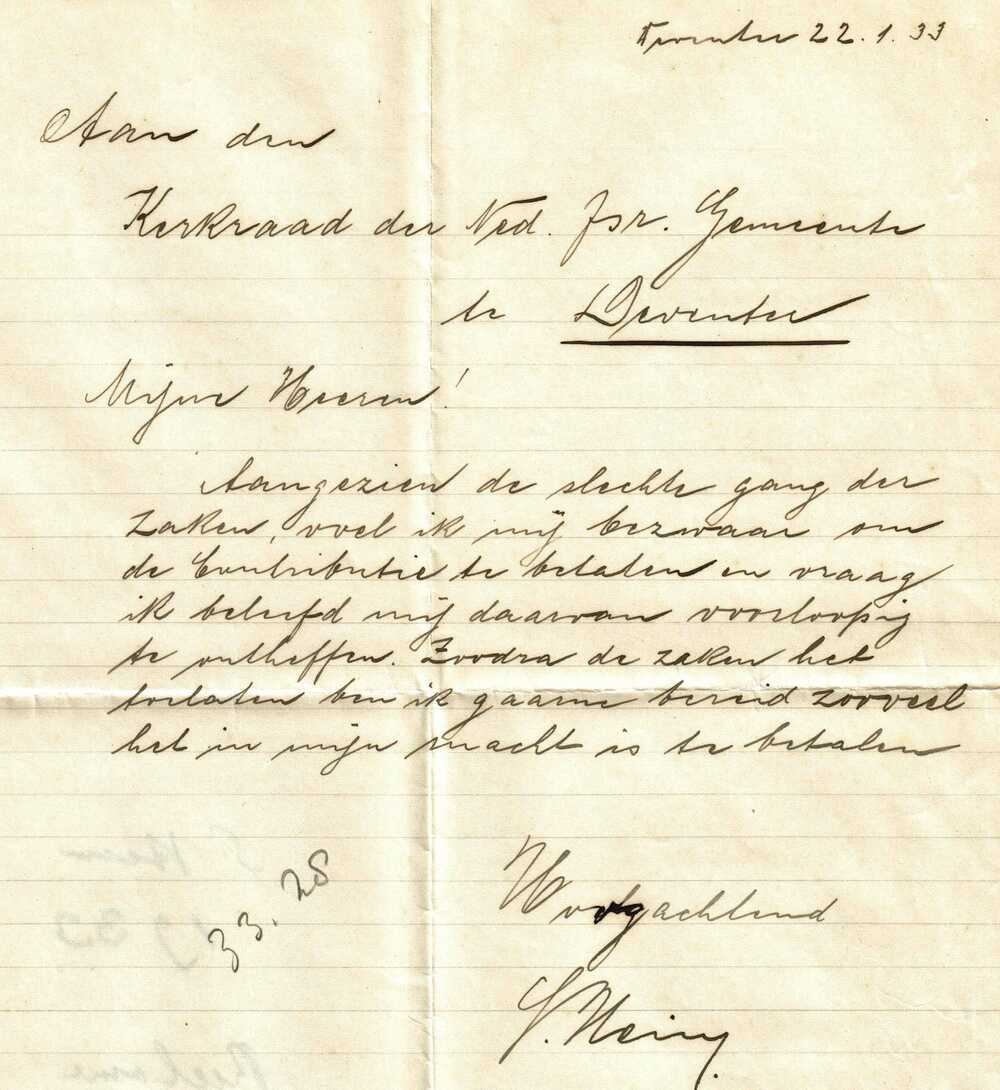 Deventer 22.1.33
Aan den
Kerkraad der Ned. Isr. Gemeente
te Deventer
Mijne Heeren!
Aangezien de slechte gang der
zaken, voel ik mij bezwaar om
de Contributie te betalen en vraag
ik beleefd mij daarvan voorloopig
te ontheffen. Zoodra de zaken het
toelaten ben ik gaarne bereid zooveel
het in mijn macht is te betalen
Hoogachtend
S.
33.28